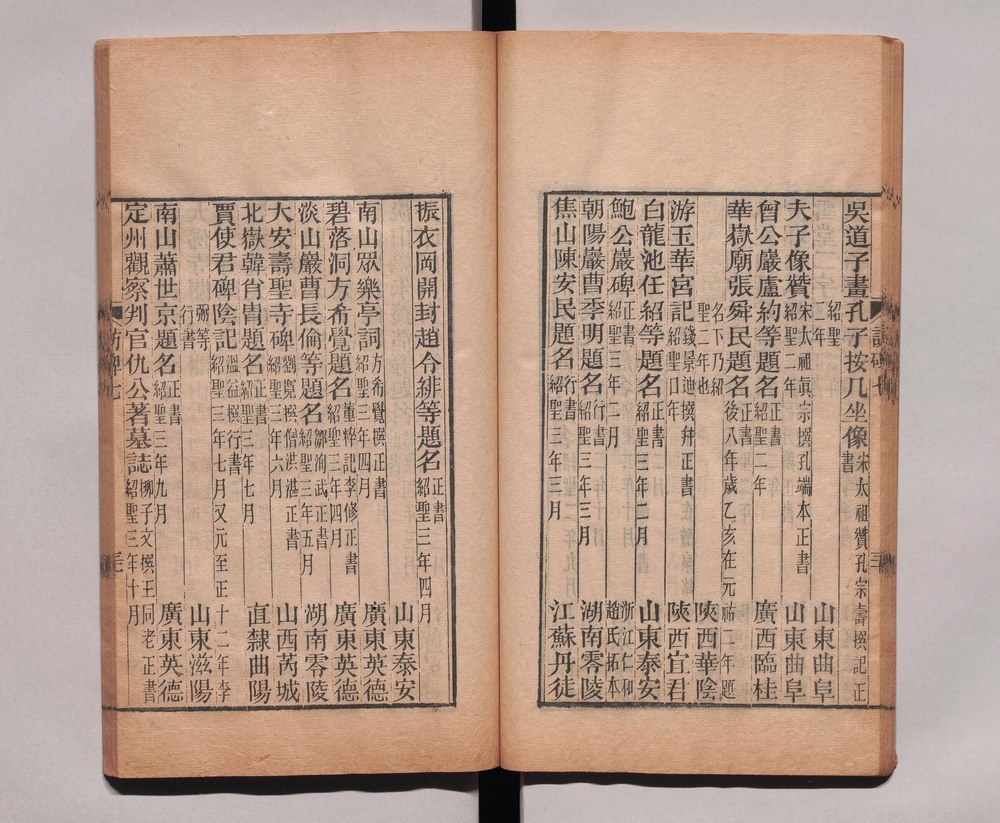 吳道子畫孔子按几坐像 宋太祖贊孔宗壽撰記正書
紹聖二年 山東曲阜
夫子像贊 宋太祖眞宗撰孔端本正書紹聖二年 山東曲阜
曾公巖盧約等題名 正書紹聖二年 廣西臨桂
華嶽廟張舜民題名 正書後八年歲乙亥在元祐二年題
名下乃紹聖二年也 陝西華陰
游玉華宮記 錢景池撰幷正書紹聖口年 陝西宜君
白龍池任紹等題名 正書紹聖三年二月 山東泰安
鮑公巖碑 正書紹聖三年二月 浙江仁和趙氏拓本
朝陽巖曹季明題名 行書紹聖三年三月 湖南零陵
焦山陳安民題名 行書紹聖三年三月 江蘇丹徒
振衣岡開封趙令緋等題名 正書紹聖三年四月
山東泰安
南山眾樂亭詞 方希覺撰正書紹聖三年四月 廣東英德
碧落洞方希覺題名 董粹記李修正書紹聖三年四月 廣東英德
淡山巖曹長倫等題名 鄒洵武正書紹聖三年五月 湖南零陵
大安壽聖寺碑 劉撰僧洪湛正書紹聖三年六月 山西芮城
北嶽韓肖胄題名 正書紹聖三年七月 直隸曲陽
賈使君碑陰記 溫益撰行書紹聖三年七月又元至正十二年李
彌等行書 山東滋陽
南山蕭世京題名 正書紹聖三年九月 廣東英德
定州觀察判官仇公著墓誌 柳子文撰王同老正書紹聖三年十月
訪碑七